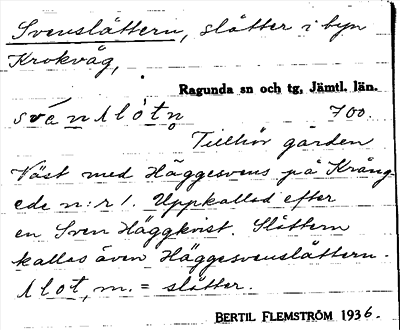 Svenslåttern, slåtter i byn
Krokvåg,
Ragunda sn och tg, Jämtl. län.
700.
Tillhör gården
Näst med Häggesvens på Krång-
ede n:r 1. Uppkallad efter
en Sven Häggkvist. Slåttern
kallas även Häggesvenslåttern.
m. = slåtter.
BERTIL FLEMSTRÖM 1936.